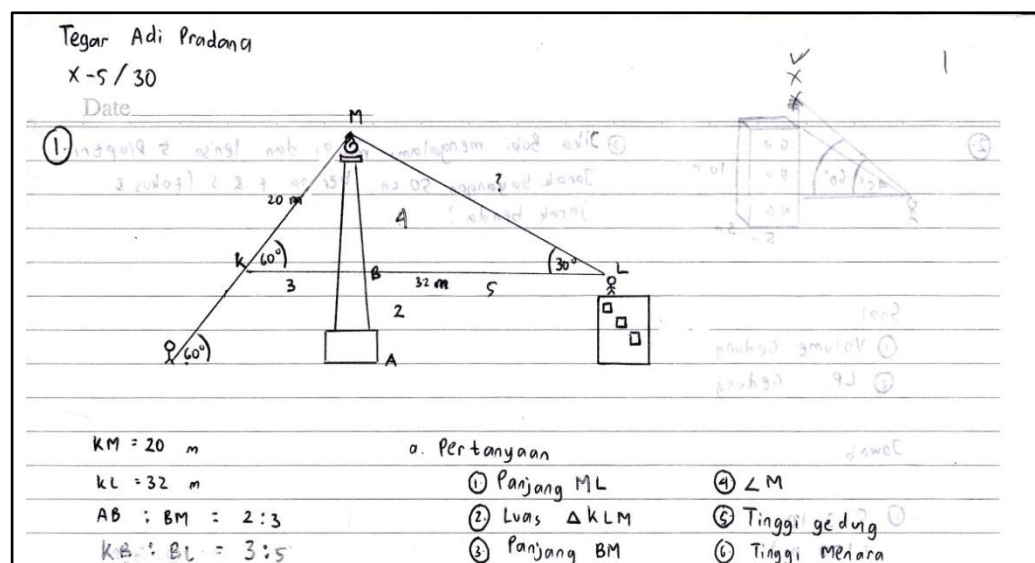 Tegar Adi Pradana
X-5/30
1
Date
①.
M
20 m
?
4
K
60°
3
B
32 m
5
30°
L
2
60°
A
KM = 20 m
KL = 32 m
AB : BM = 2:3
KB : BL = 3:5
a. Pertanyaan
① Panjang ML
② Luas △KLM
③ Panjang BM
④ ∠M
⑤ Tinggi gedung
⑥ Tinggi Menara